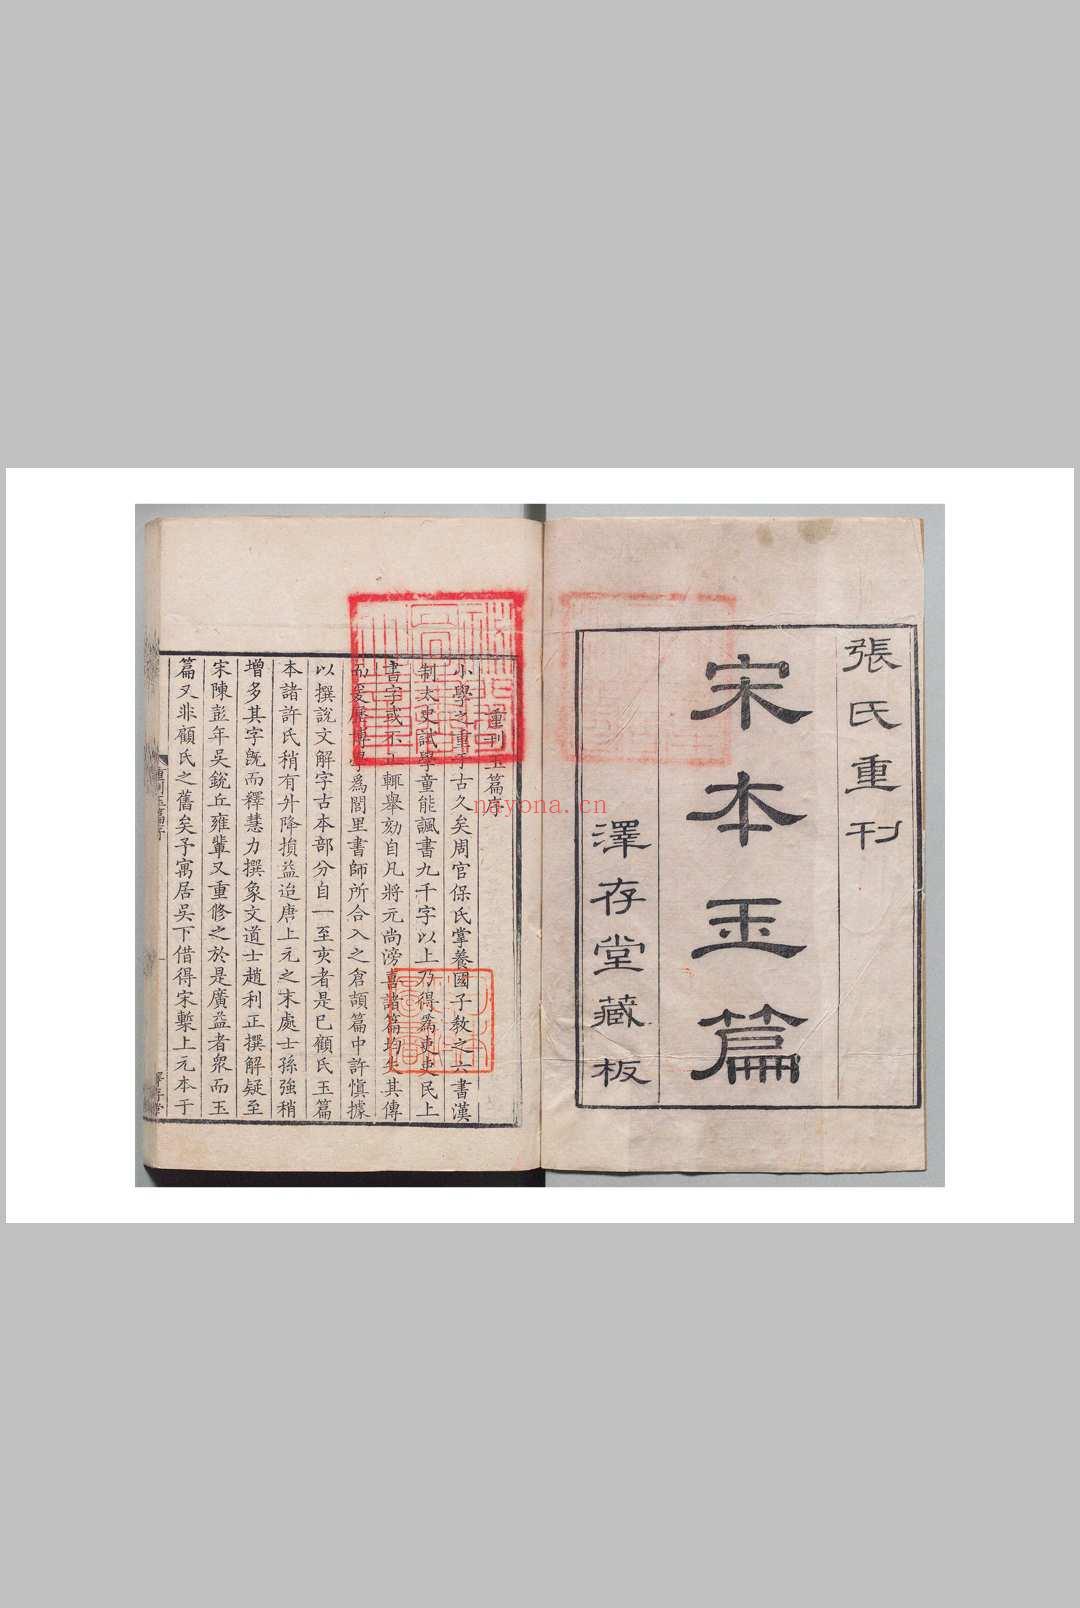 張氏重刊
宋本玉篇
澤存堂藏板
重刊玉篇序
小學之重于古久矣周官保氏掌養國子教之六書漢
制太史試學童能諷書九千字以上乃得為吏吏民上
書字或不正輒舉劾自凡將元尚滂喜諸篇均失其傳
而爰歷博學為閭里書師所合入之倉頡篇中許慎據
以撰說文解字古本部分自一至亥者是已顧氏玉篇
本諸許氏稍有升降損益迨唐上元之末處士孫強稍
增多其字既而釋慧力撰象文道士趙利正撰解疑至
宋陳彭年吳銳丘雍輩又重修之於是廣益者眾而玉
篇又非顧氏之舊矣予寓居吳下借得宋槧上元本于
重刊玉篇序
一
澤存堂
nayona.cn